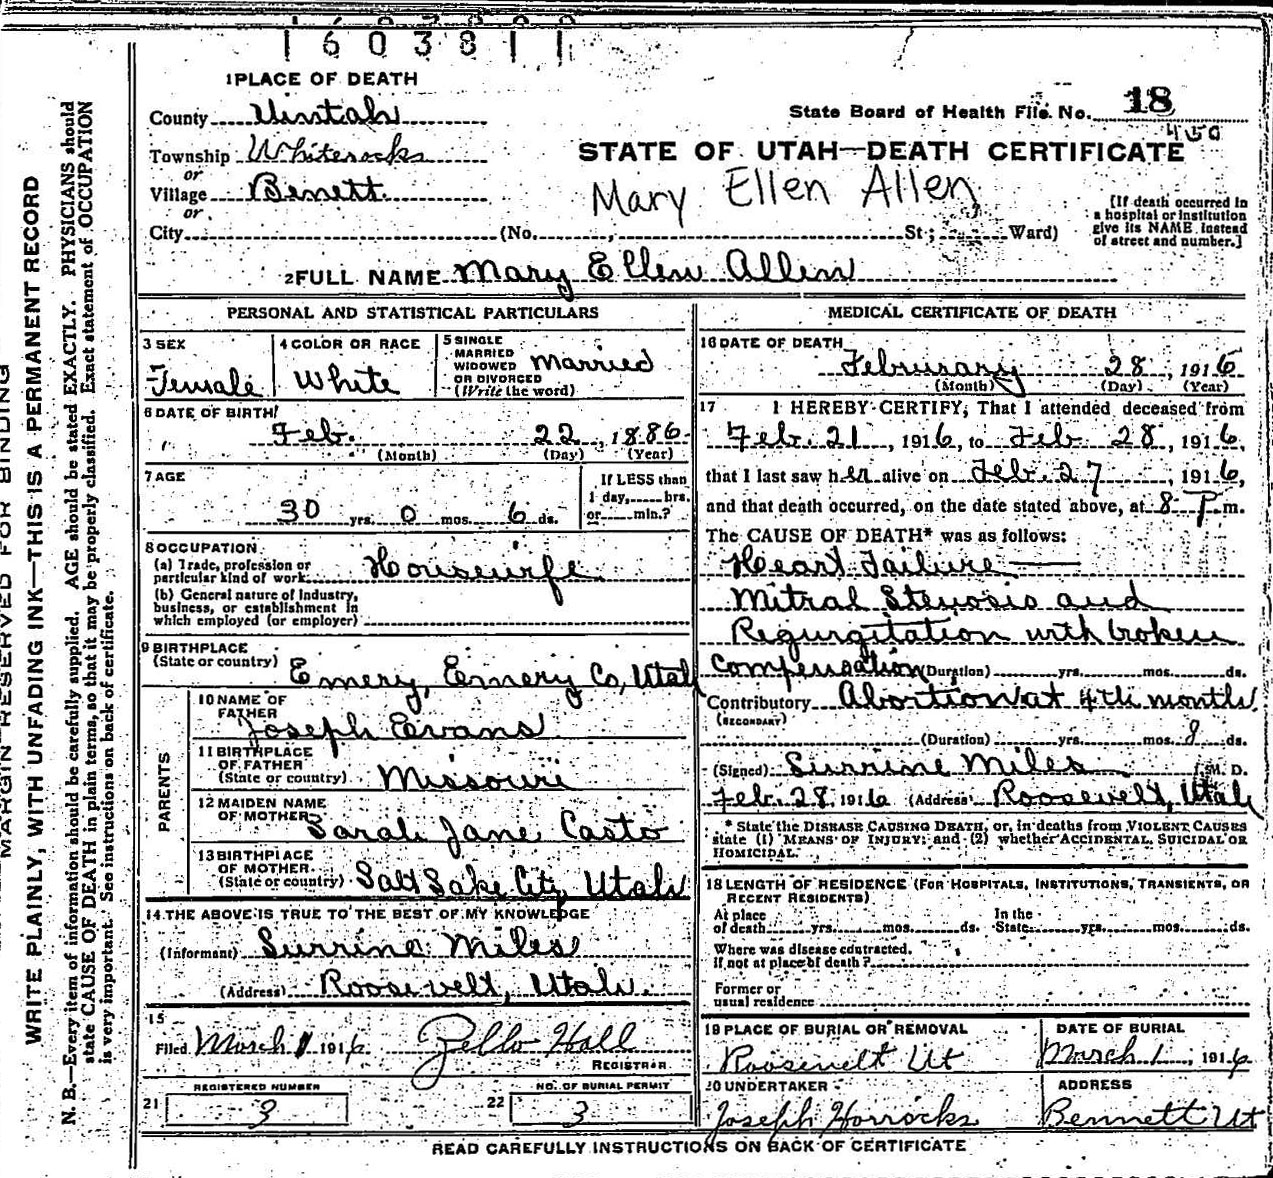 1603811
1 PLACE OF DEATH
County Uintah
State Board of Health File No. 18
450
Township Whiterocks
or
STATE OF UTAH—DEATH CERTIFICATE
Village Benett
or
Mary Ellen Allen
City (No. , St ; Ward)
[If death occurred in
a hospital or institution
give its NAME instead
of street and number.]
2 FULL NAME Mary Ellen Allen
PERSONAL AND STATISTICAL PARTICULARS
3 SEX
Female
4 COLOR OR RACE
White
5 SINGLE
MARRIED
WIDOWED
OR DIVORCED
(Write the word)
Married
6 DATE OF BIRTH
Feb. 22, 1886
(Month) (Day) (Year)
7 AGE
30 yrs. 0 mos. 6 ds.
If LESS than
1 day, hrs.
or min.?
8 OCCUPATION
(a) Trade, profession or
particular kind of work Housewife
(b) General nature of industry,
business, or establishment in
which employed (or employer)
9 BIRTHPLACE
(State or country) Emery, Emery Co, Utah
PARENTS
10 NAME OF
FATHER
Joseph Evans
11 BIRTHPLACE
OF FATHER
(State or country) Missouri
12 MAIDEN NAME
OF MOTHER Sarah Jane Casto
13 BIRTHPLACE
OF MOTHER
(State or country) Salt Lake City, Utah
14 THE ABOVE IS TRUE TO THE BEST OF MY KNOWLEDGE
(Informant) Surrine Miles
(Address) Roosevelt, Utah.
15
Filed March 1 1916 Zello Hall
REGISTRAR
REGISTERED NUMBER
21 3
NO. OF BURIAL PERMIT
22 3
MEDICAL CERTIFICATE OF DEATH
16 DATE OF DEATH
February 28, 1916
(Month) (Day) (Year)
17 I HEREBY CERTIFY, That I attended deceased from
Feb. 21, 1916, to Feb 28, 1916,
that I last saw her alive on Feb. 27, 1916,
and that death occurred, on the date stated above, at 8 P.m.
The CAUSE OF DEATH* was as follows:
Heart Failure
Mitral Stenosis and
Regurgitation with broken
Compensation (Duration) yrs. mos. ds.
Contributory Abortion at 4th month.
(SECONDARY)
(Duration) yrs. mos. 8 ds.
(Signed) Surrine Miles M. D.
Feb. 28. 1916 (Address) Roosevelt, Utah
* State the DISEASE CAUSING DEATH, or, in deaths from VIOLENT CAUSES
state (1) MEANS OF INJURY; and (2) whether ACCIDENTAL, SUICIDAL OR
HOMICIDAL.
18 LENGTH OF RESIDENCE (FOR HOSPITALS, INSTITUTIONS, TRANSIENTS, OR
RECENT RESIDENTS)
At place
of death yrs. mos. ds.
In the
State yrs. mos. ds.
Where was disease contracted,
if not at place of death?
Former or
usual residence
19 PLACE OF BURIAL OR REMOVAL
Roosevelt Ut
DATE OF BURIAL
March 1, 1916
20 UNDERTAKER
Joseph Horrocks
ADDRESS
Bennett Ut
READ CAREFULLY INSTRUCTIONS ON BACK OF CERTIFICATE
MARGIN RESERVED FOR BINDING
WRITE PLAINLY, WITH UNFADING INK—THIS IS A PERMANENT RECORD
N. B.—Every item of information should be carefully supplied. AGE should be stated EXACTLY. PHYSICIANS should
state CAUSE OF DEATH in plain terms, so that it may be properly classified. Exact statement of OCCUPATION
is very important. See instructions on back of certificate.